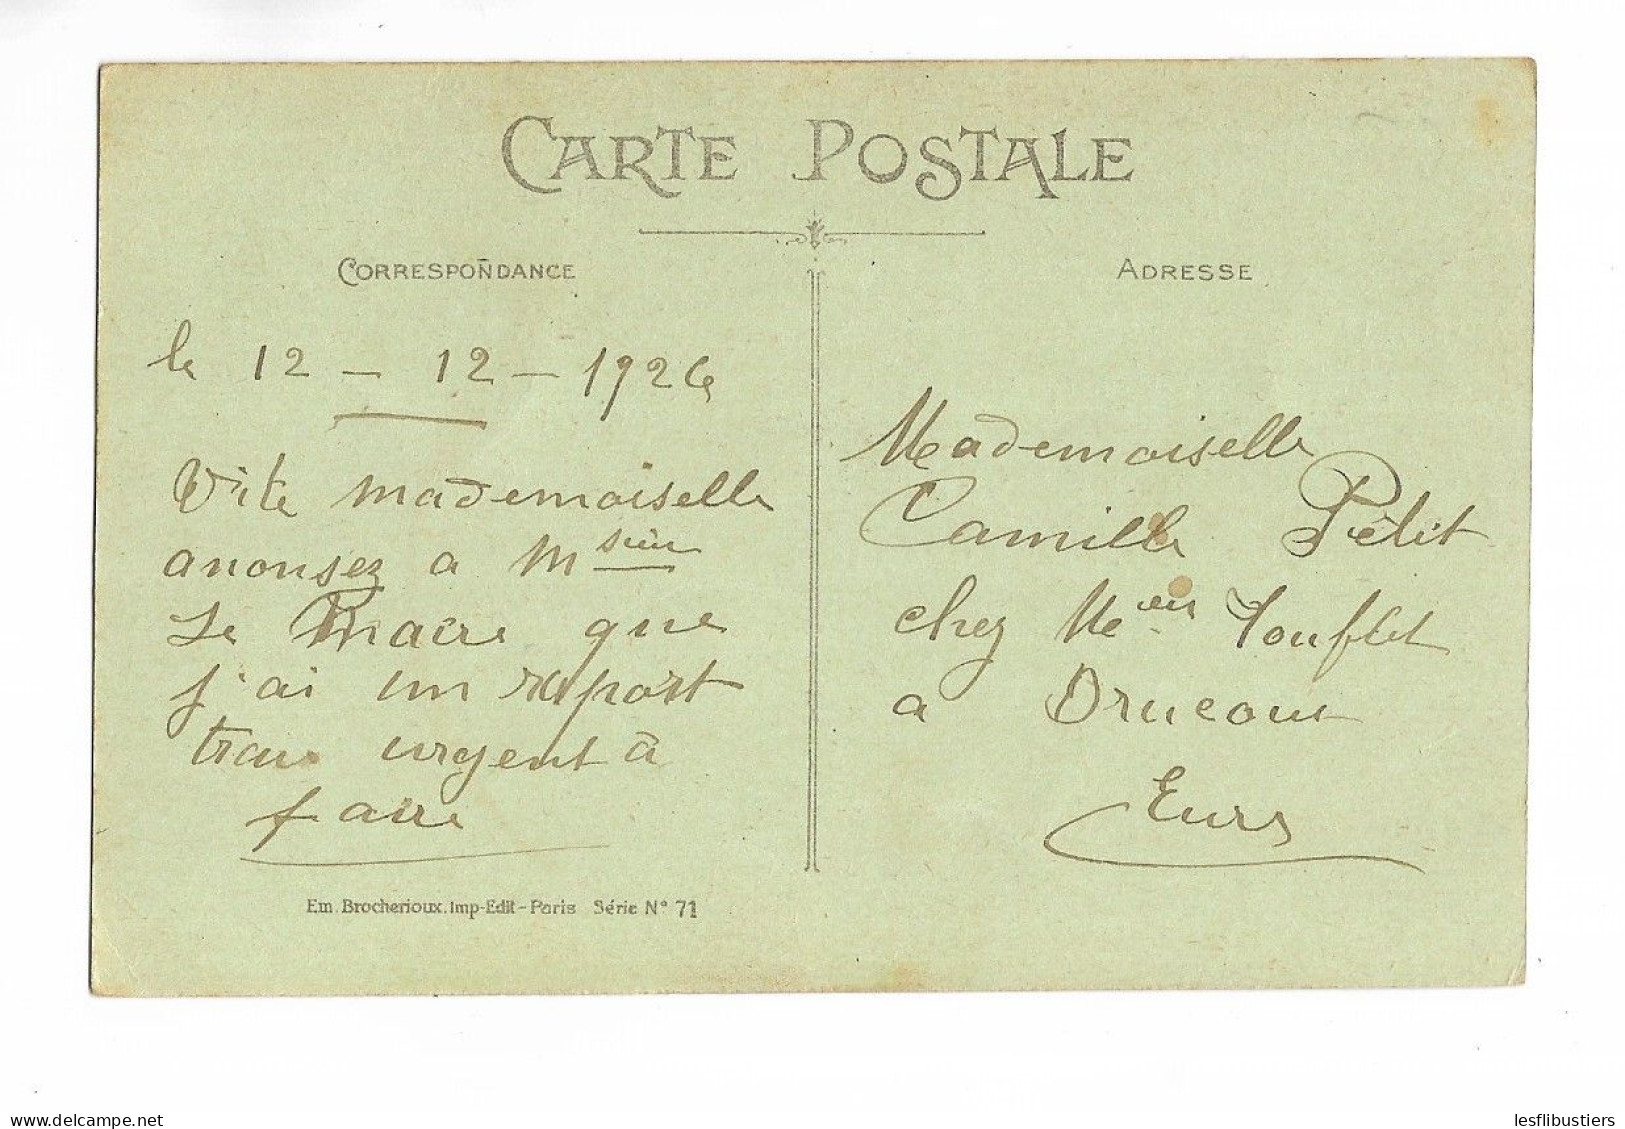 CARTE POSTALE
CORRESPONDANCE
le 12 - 12 - 1926
Vite mademoiselle
anonsez a Msieu
Le Maire que
j'ai un raport
trais urgent à
faire
Em. Brocherioux. Imp-Edit - Paris Série N° 71
ADRESSE
Mademoiselle
Camille Pétit
chez Me Toufflet
a Drucour
Eure
www.delcampe.net
lesflibustiers